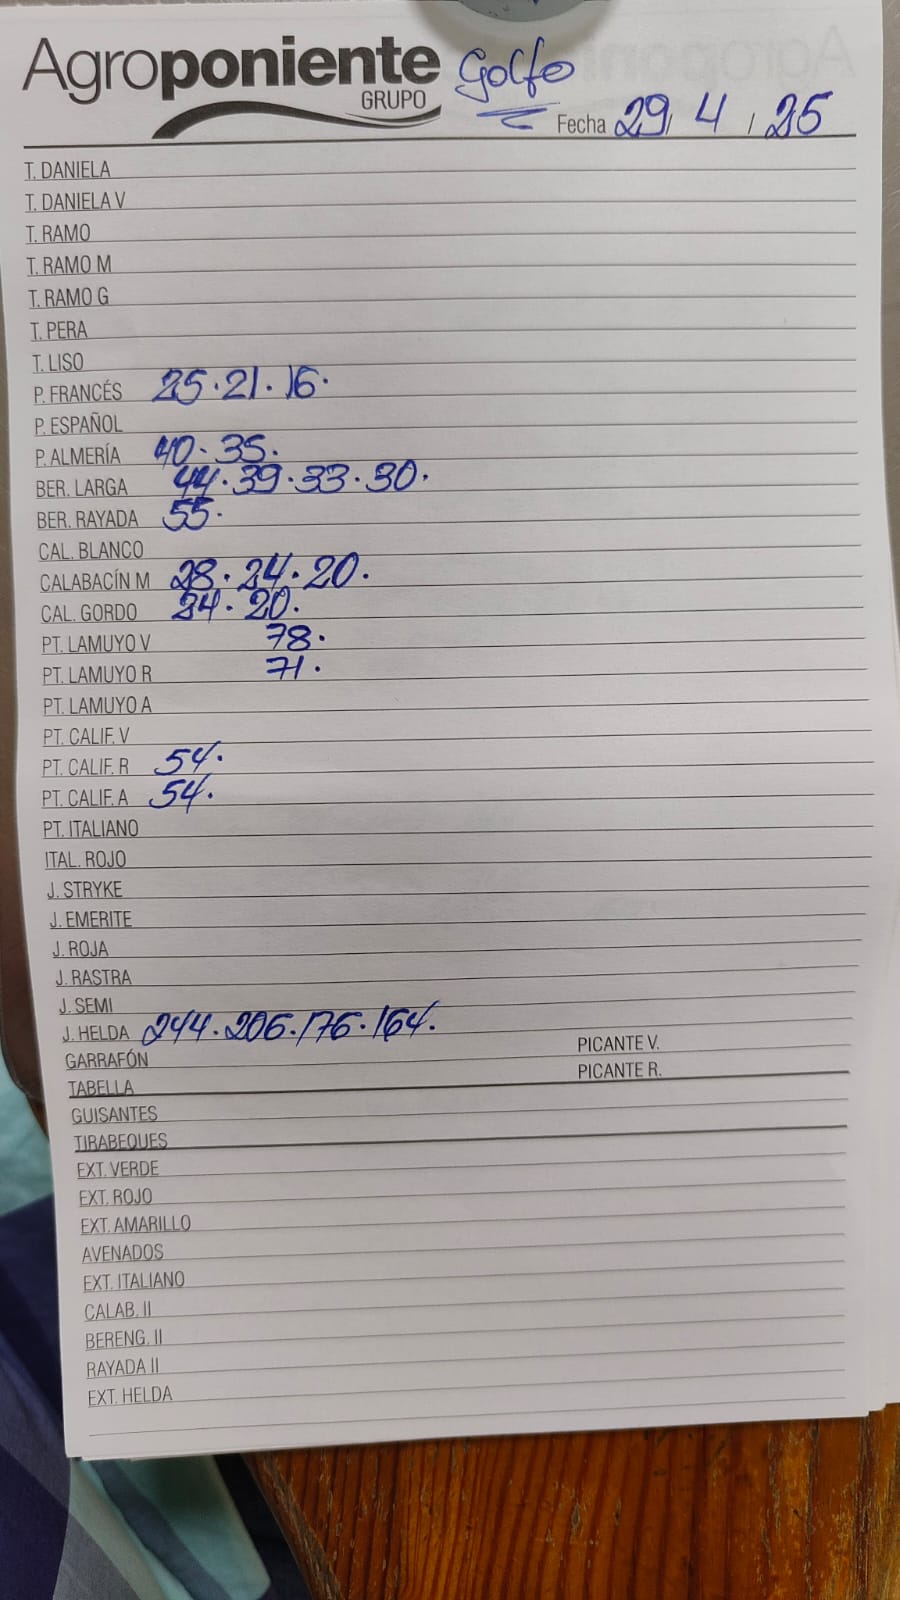 Agroponiente Golfo
GRUPO
Fecha 29/ 4 / 25
T. DANIELA
T. DANIELA V
T. RAMO
T. RAMO M
T. RAMO G
T. PERA
T. LISO
P. FRANCÉS 25·21·16·
P. ESPAÑOL
P. ALMERÍA 40·35·
BER. LARGA 44·39·33·30·
BER. RAYADA 55·
CAL. BLANCO
CALABACÍN M 28·24·20·
CAL. GORDO 24·20·
PT. LAMUYO V 78·
PT. LAMUYO R 71·
PT. LAMUYO A
PT. CALIF. V
PT. CALIF. R 54·
PT. CALIF. A 54·
PT. ITALIANO
ITAL. ROJO
J. STRYKE
J. EMERITE
J. ROJA
J. RASTRA
J. SEMI
J. HELDA 244·206·176·164·
GARRAFÓN PICANTE V.
TABELLA PICANTE R.
GUISANTES
TIRABEQUES
EXT. VERDE
EXT. ROJO
EXT. AMARILLO
AVENADOS
EXT. ITALIANO
CALAB. II
BERENG. II
RAYADA II
EXT. HELDA